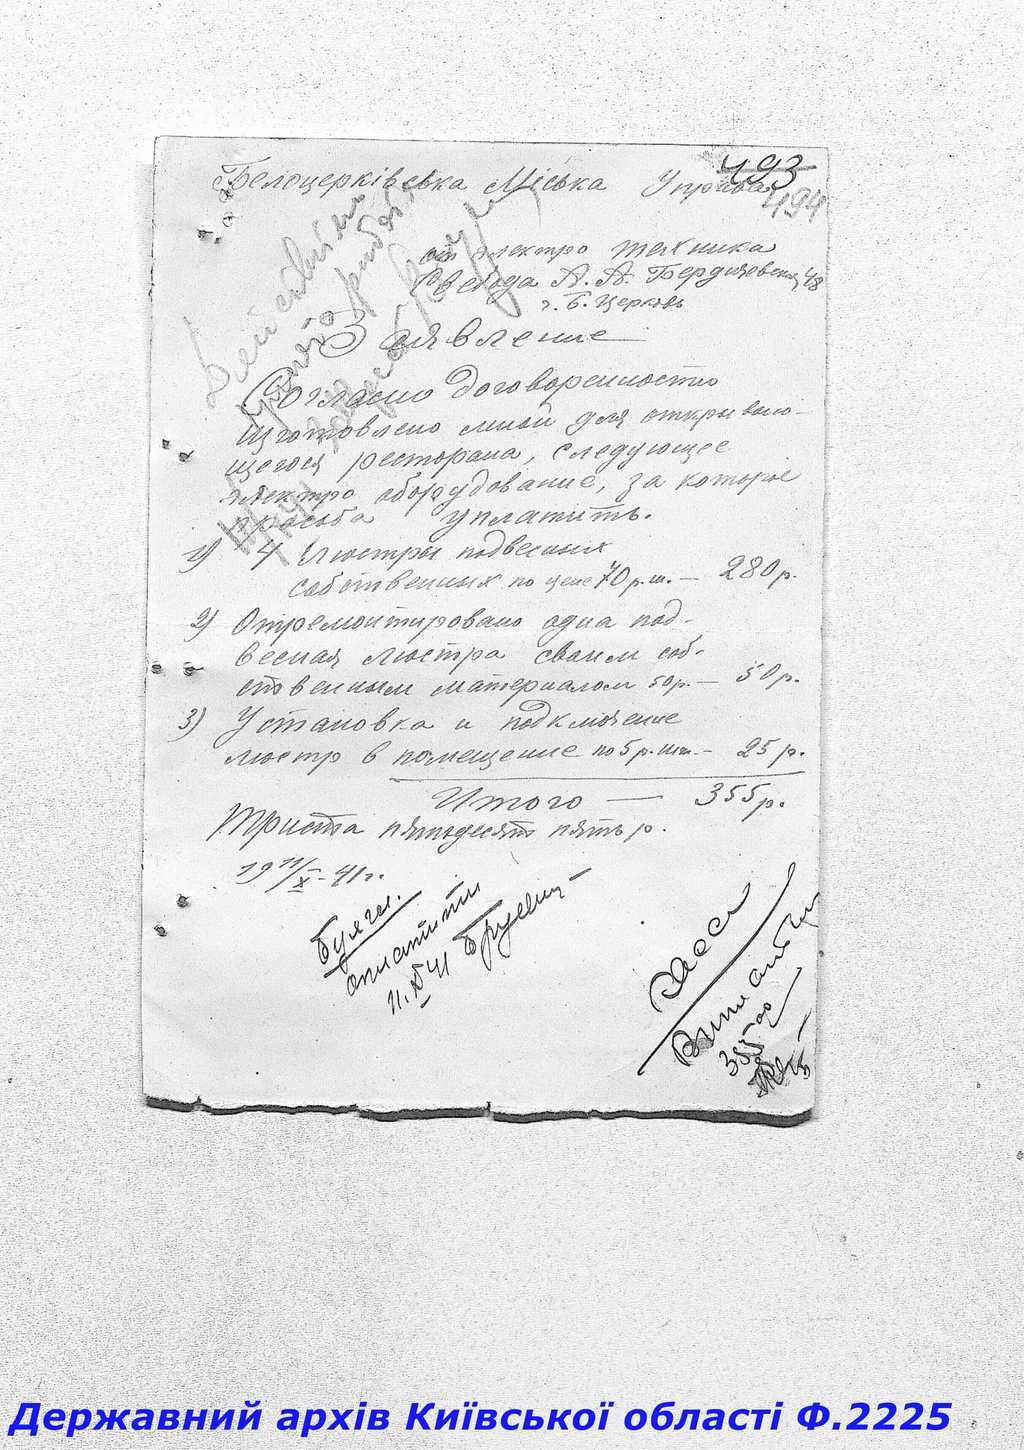 493
494
Белоцерківська Міська Управа
от електро техника
Свобода А. А. Бердичевская 48
г. Б. Церковь
Заявление
Согласно договоренности
изготовлено мной для открываю-
щегося ресторана, следующее
електро оборудование, за которые
просьба уплатить.
1) 4 Люстры подвесных
собственных по цене 70 р. ш. — 280 р.
2) Отремонтировано одна под-
весная люстра своим соб-
ственным материалом 50 р. — 50 р.
3) Установка и подключение
люстр в помещение по 5 р. шт. — 25 р.
Итого — 355 р.
Триста пятьдесят пять р.
19 11/X - 41 г.
Бухг.
оплатити
Каса
Виплатити
355-00
Державний архів Київської області Ф.2225